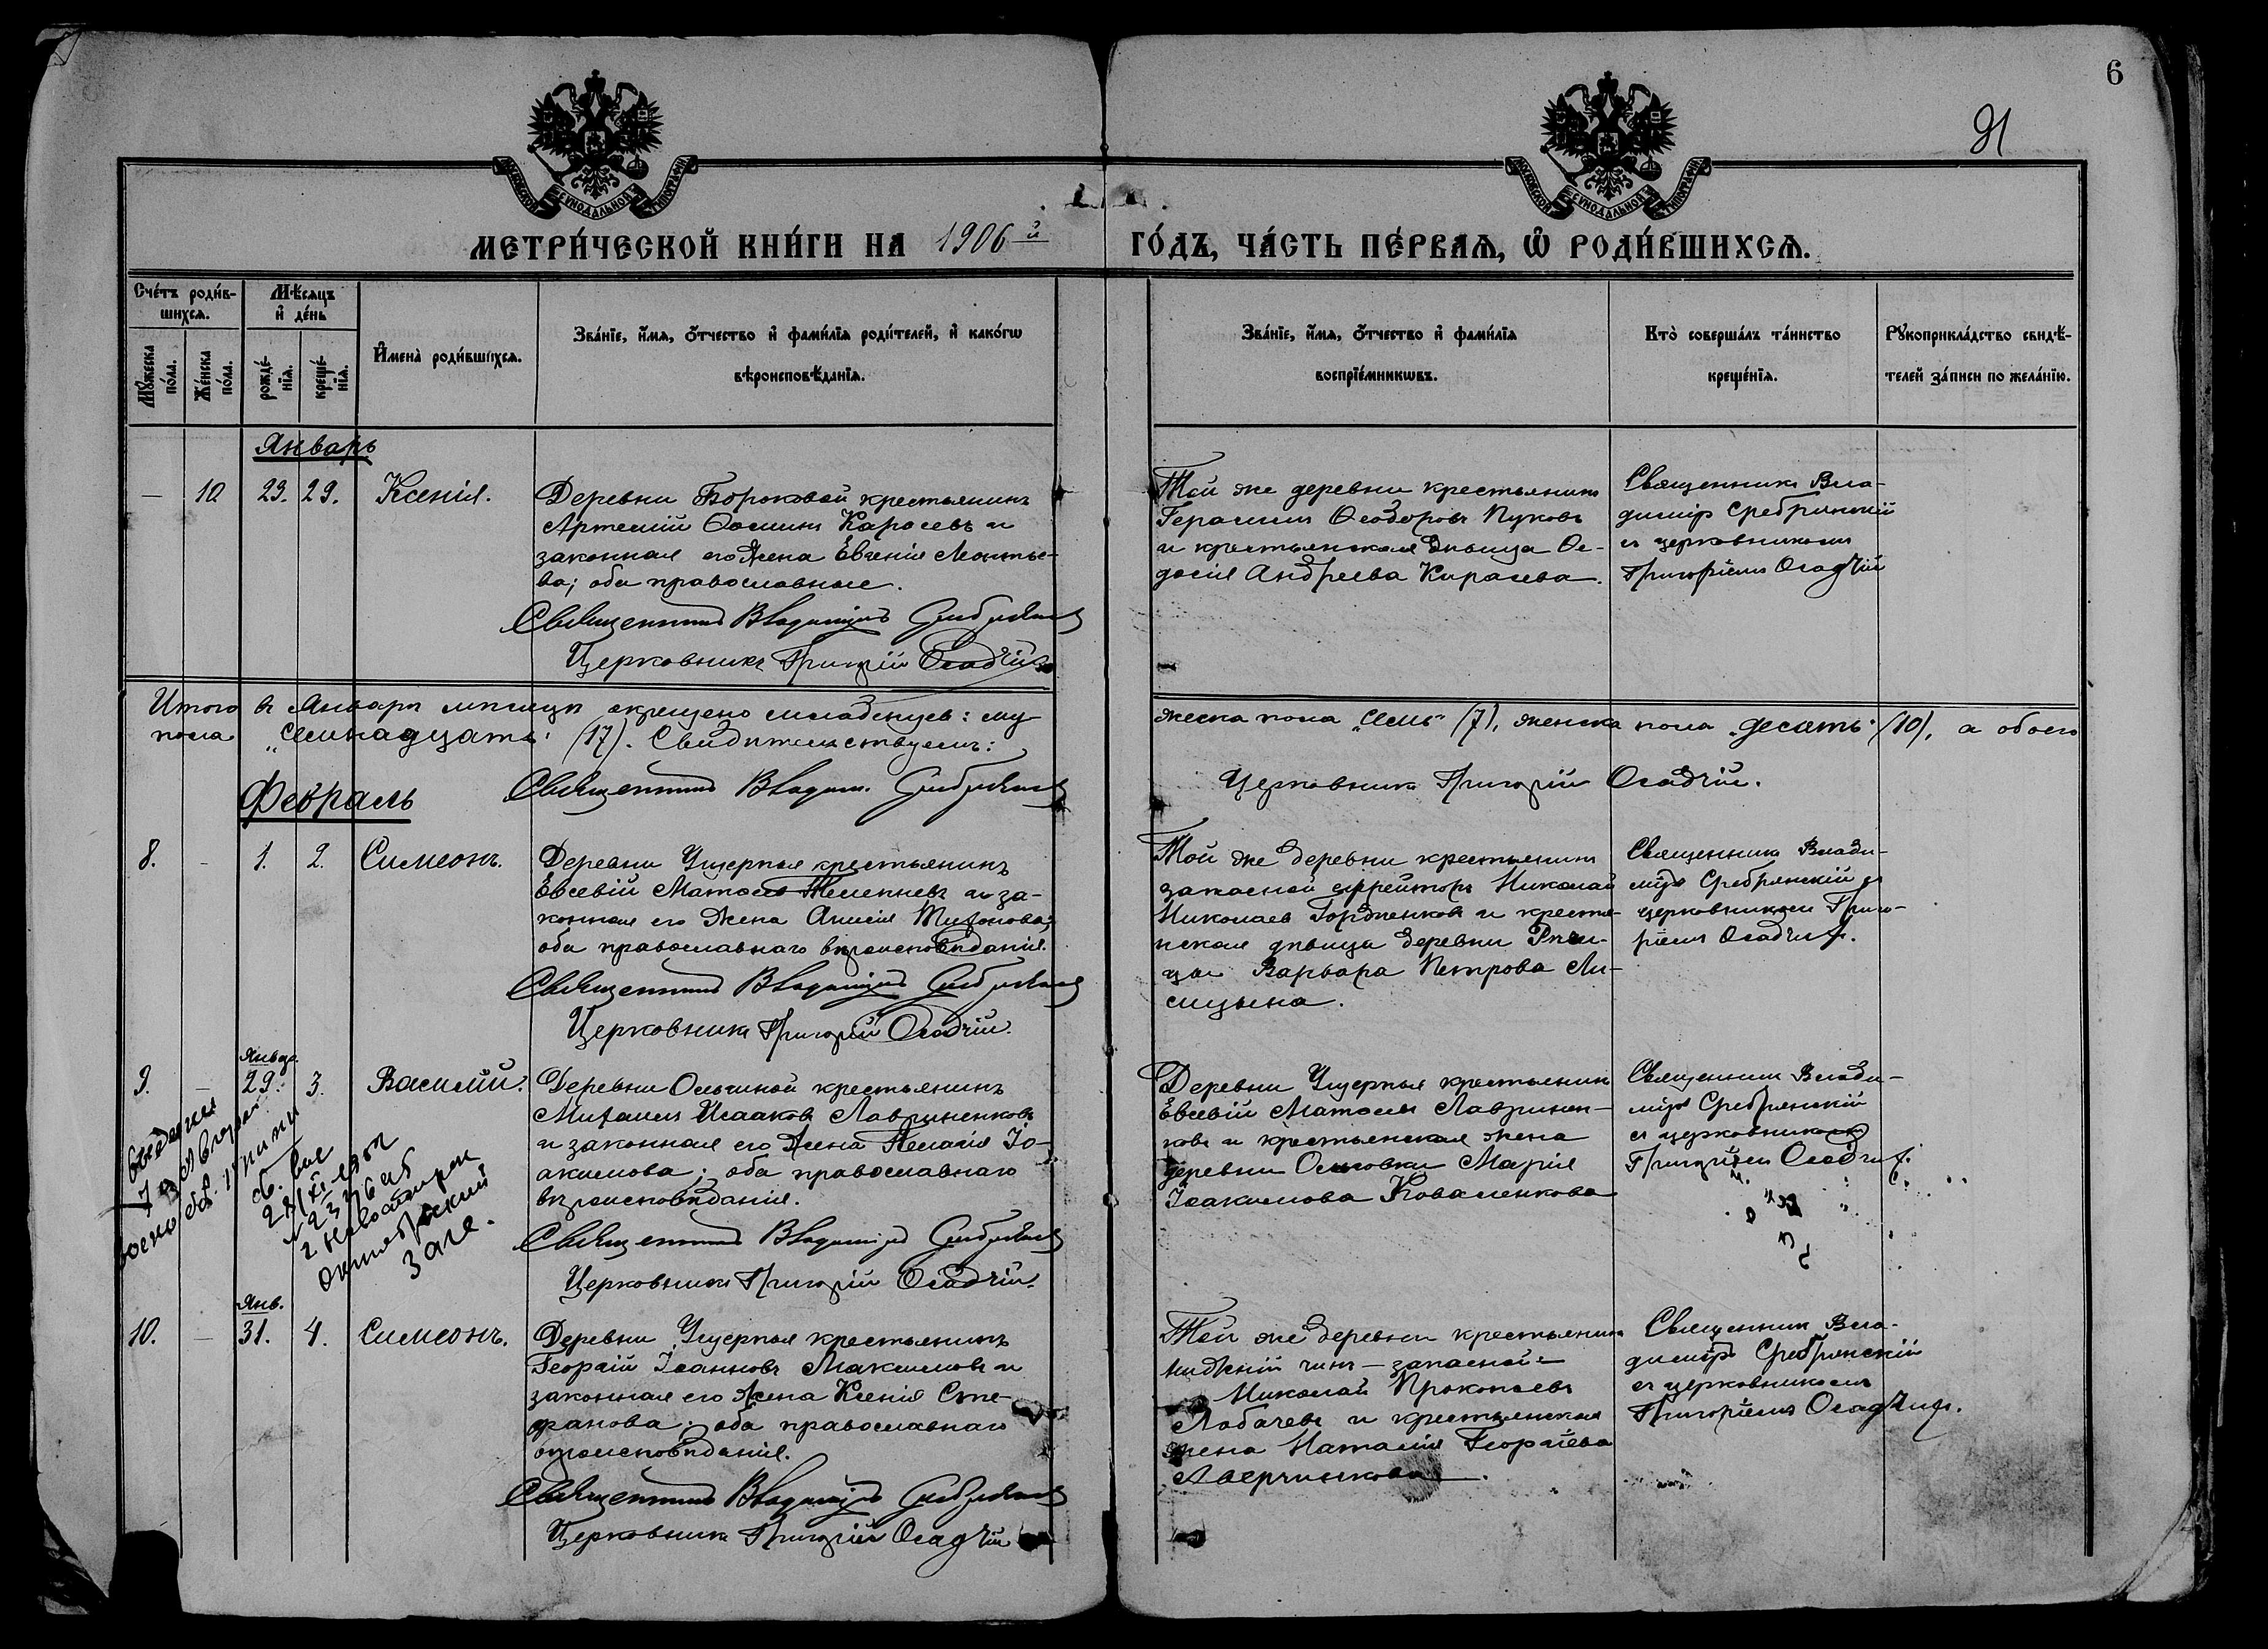 6
91
МОСКОВСКОЙ СѴНОДАЛЬНОЙ ТИПОГРАФІИ
МОСКОВСКОЙ СѴНОДАЛЬНОЙ ТИПОГРАФІИ
МЕТРИ́ЧЕСКОЙ КНИ́ГИ НА 1906й ГО́ДЪ, ЧА́СТЬ ПЕ́РВАѦ, Ѡ҆ РОДИ́ВШИХСѦ.
Сче́тъ роди́в-
шихсѧ.
Мꙋ́жеска
по́ла.
Же́нска
по́ла.
Мѣ́сѧцъ
и҆ де́нь
рожде́-
нїѧ.
креще́-
нїѧ.
И҆мена̀ роди́вшихсѧ.
Зва́нїе, и҆́мѧ, ѻ҆́тчество и҆ фами́лїѧ роди́телей, и҆ како́гѡ
вѣроисповѣ́данїѧ.
Зва́нїе, и҆́мѧ, ѻ҆́тчество и҆ фами́лїѧ
воспрїе́мникѡвъ.
Кто̀ соверша́лъ та́инство
креще́нїѧ.
Рꙋкоприкла́дство свидѣ́-
телей за́писи по жела́нїю.
Январь
— 10 29. 29. Ксенія.
Деревни Бороковой крестьянинъ
Артемій Ѳоминъ Карасевъ и
законная его жена Евгенія Леонтье-
ва; оба православные.
Священникъ Владиміръ Сребрянскій
Церковникъ Григорій Осадчій
Той же деревни крестьянинъ
Герасимъ Ѳеодоровъ Пуковъ
и крестьянская дѣвица Ѳе-
досія Андреева Карасева.
Священникъ Вла-
диміръ Сребрянскій
съ церковникомъ
Григоріемъ Осадчій
Итого въ Январѣ мѣсяцѣ окрещено младенцевъ: му-
жеска пола „семь" (7), женска пола „десять" (10), а обоего
пола „семнадцать" (17). Свидѣтельствуемъ:
Священникъ Владим. Сребрянскій
Церковникъ Григорій Осадчій.
Февраль
8. - 1. 2. Симеонъ.
Деревни Ущерпья крестьянинъ
Евсевій Матѳіевъ и за-
конная его жена Анисія Тихонова;
оба православнаго вѣроисповѣданія.
Священникъ Владиміръ Сребрянскій
Церковникъ Григорій Осадчій.
Той же деревни крестьянинъ
запасной ефрейторъ Николай
Николаевъ Гордиенковъ и крестья-
нская дѣвица деревни
Варвара Петрова Ли-
сицына.
Священникъ Влади-
міръ Сребрянскій съ
церковникомъ Григо-
ріемъ Осадчимъ.
9. — Января 29. 3. Василій.
Деревни Ольгиной крестьянинъ
Михаилъ Исааковъ Лавриненковъ
и законная его жена Пелагія Іо-
акимова; оба православнаго
вѣроисповѣданія.
Священникъ Владиміръ Сребрянскій
Церковникъ Григорій Осадчій.
Деревни Ущерпья крестьянинъ
Евсевій Матѳіевъ Лавринен-
ковъ и крестьянская жена
деревни Марія
Іоакимова Коваленкова
Священникъ Влади-
міръ Сребрянскій
съ церковникомъ
Григоріемъ Осадчимъ.
октябрьский
загс.
10. — Янв. 31. 4. Симеонъ.
Деревни Ущерпья крестьянинъ
Георгій Іоанновъ Максимовъ и
законная его жена Ксенія Сте-
фанова; оба православнаго
вѣроисповѣданія.
Священникъ Владиміръ Сребрянскій
Церковникъ Григорій Осадчій
Той же деревни крестьянинъ
нижній чинъ — запасной —
Николай Прокопьевъ
Лобачевъ и крестьянская
жена Наталія Георгіева
Аверченкова.
Священникъ Вла-
диміръ Сребрянскій
съ церковникомъ
Григоріемъ Осадчимъ.